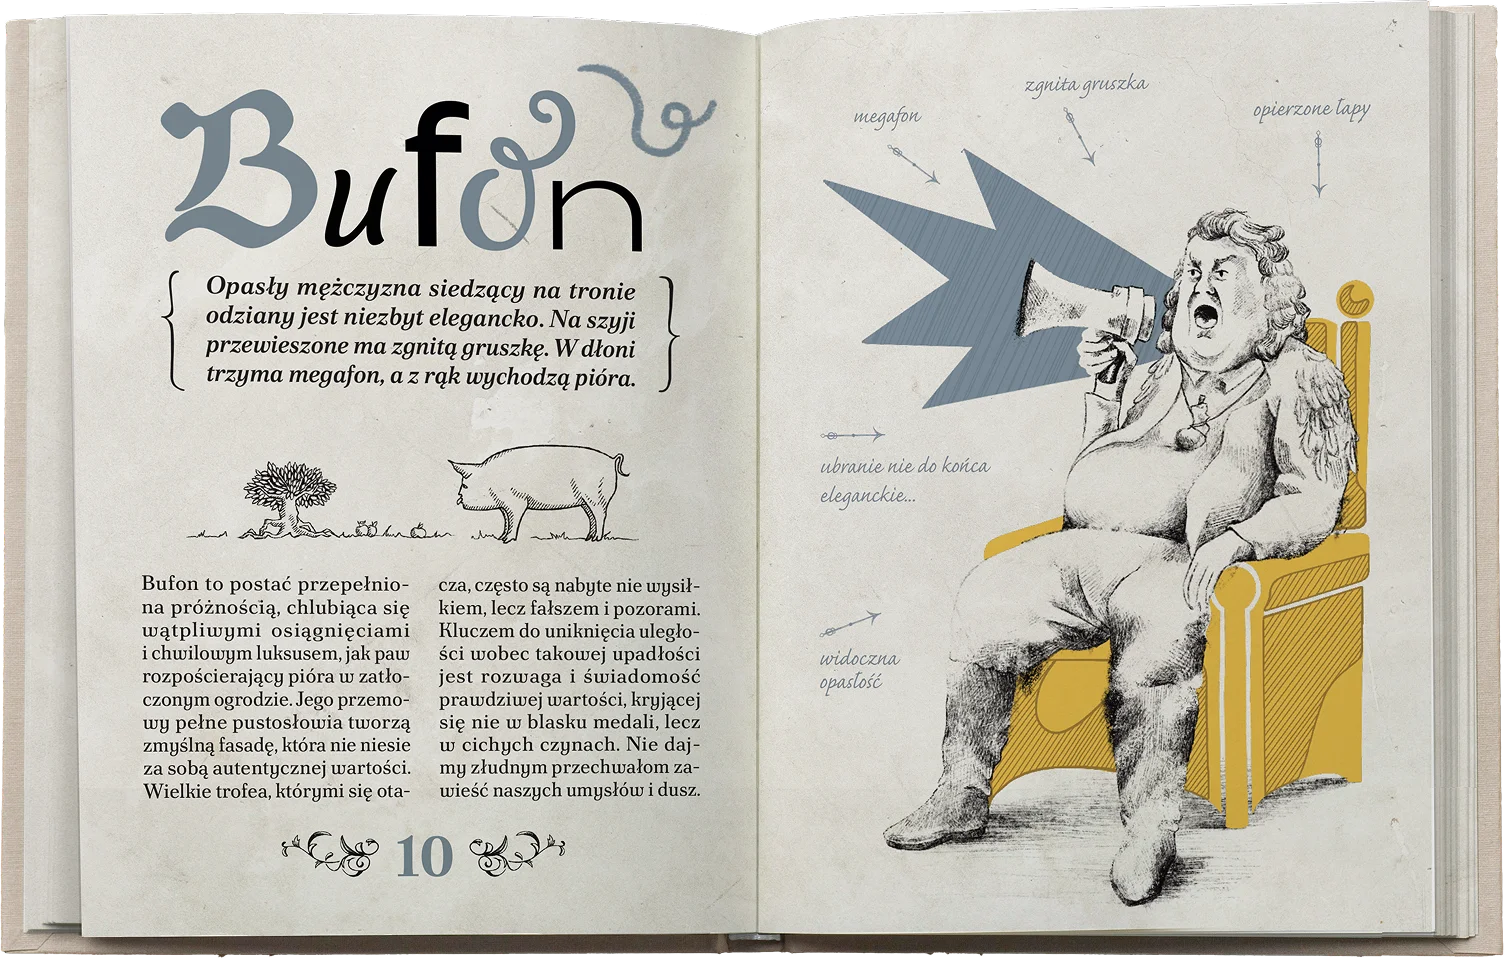 Bufon
Opasły mężczyzna siedzący na tronie
odziany jest niezbyt elegancko. Na szyji
przewieszone ma zgnitą gruszkę. W dłoni
trzyma megafon, a z rąk wychodzą pióra.
Bufon to postać przepełnio-
na próżnością, chlubiąca się
wątpliwymi osiągnięciami
i chwilowym luksusem, jak paw
rozpościerający pióra w zatło-
czonym ogrodzie. Jego przemo-
wy pełne pustosłowia tworzą
zmyślną fasadę, która nie niesie
za sobą autentycznej wartości.
Wielkie trofea, którymi się ota-
cza, często są nabyte nie wysił-
kiem, lecz fałszem i pozorami.
Kluczem do uniknięcia uległo-
ści wobec takowej upadłości
jest rozwaga i świadomość
prawdziwej wartości, kryjącej
się nie w blasku medali, lecz
w cichych czynach. Nie daj-
my złudnym przechwałom za-
wieść naszych umysłów i dusz.
10
megafon
zgniła gruszka
opierzone łapy
ubranie nie do końca
eleganckie...
widoczna
opasłość